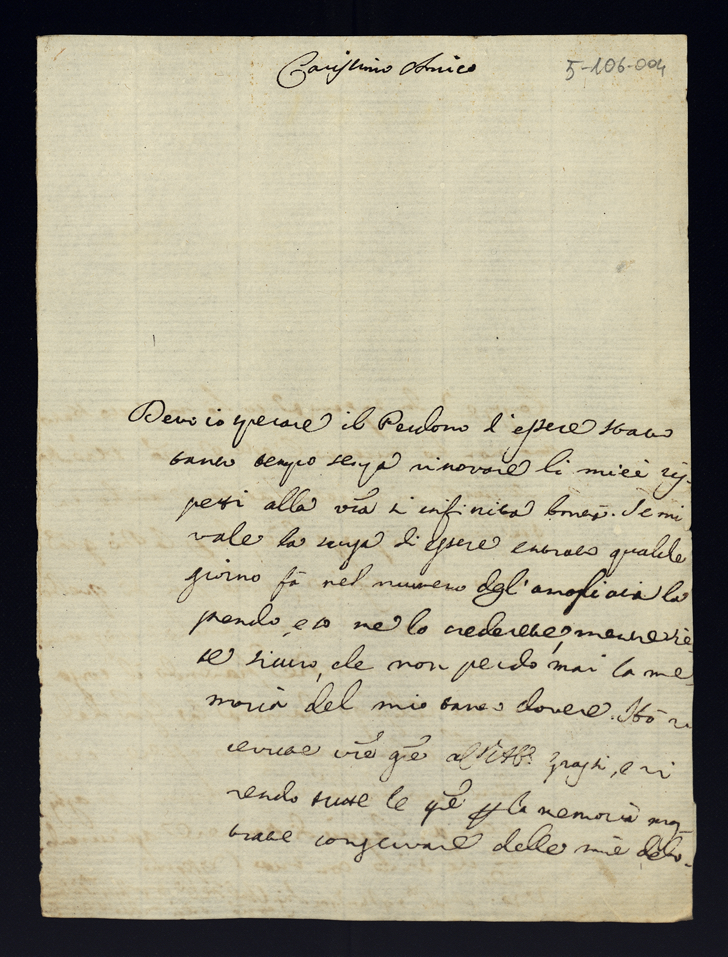 Carissimo Amico
5-106-004
Devo io sperare il Perdono d'essere stato
tanto tempo senza rinovare li miei ris-
petti alla vr̃a sì infinita bontà. Se mi
vale la scusa di essere entrato qualche
giorno fà nel numero degl'
prendo, e so me lo crederete, mentre sie-
te sicuro, che non perdo mai la me-
moria del mio tanto dovere. Hò ri
cevute vr̃e gr̃e al e vi
rendo tutte le gr̃e la memoria mos-
trate conservare delle mie debo-